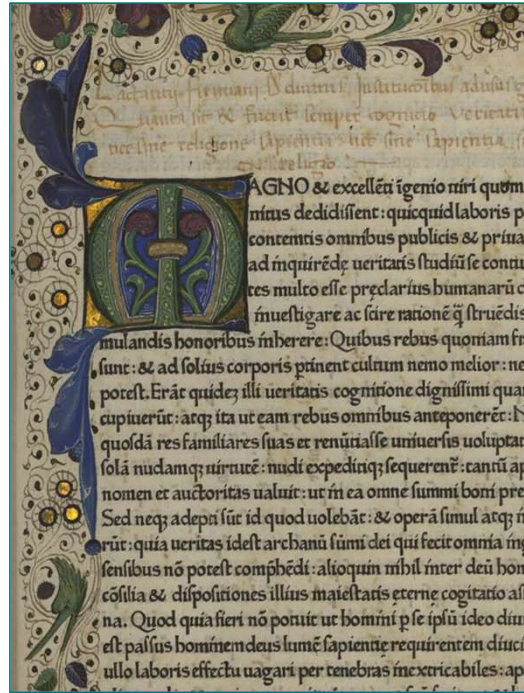 Lactantii firmiani D diuinis Institucoibus adusus g
Quanta sit & fuerit semper cognicio veritati
nec sine religione sapientia nec sine sapientia
religio
MAGNO & excellēti īgenio uiri quom
nitus dedidissent: quicquid laboris p
contemtis omnibus publicis & priua
ad inquirēdę ueritatis studiū se contu
tes multo esse pręclarius humanarū
inuestigare ac scire rationē q̄ struēdis
mulandis honoribus inherere: Quibus rebus quoniam fr
sunt: & ad solius corporis ptinent cultum nemo melior: ne
potest. Erāt quideȝ illi ueritatis cognitione dignissimi qua
cupiuerūt: atqȝ ita ut eam rebus omnibus anteponerēt: N
quosdā res familiares suas et renūtiasse uniuersis uoluptat
solā nudamqȝ uirtutē: nudi expeditiqȝ sequerent̄: tantū ap
nomen et auctoritas ualuit: ut in ea omne summi boni pre
Sed neqȝ adepti sūt id quod uolebāt: & operā simul atqȝ in
rūt: quia ueritas idest archanū sūmi dei qui fecit omnia ing
sensibus nō potest comp̄hēdi: alioquin nihil inter deū hom
cōsilia & dispositiones illius maiestatis eterne cogitatio as
na. Quod quia fieri nō potuit ut homini p se ipsū ideo diu
est passus hominem deus lumē sapientię requirentem diuci
ullo laboris effectu uagari per tenebras inextricabiles: ap